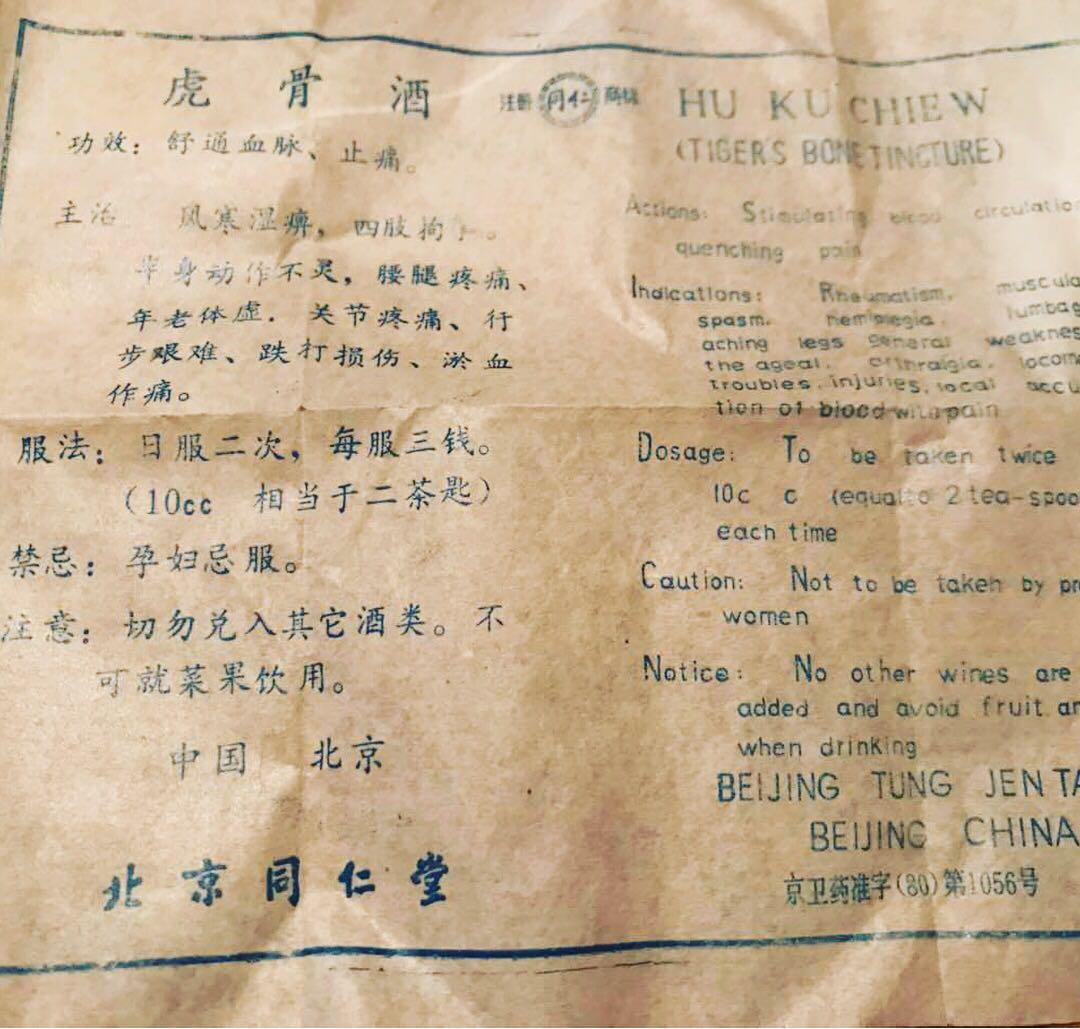 虎骨酒
功效：舒通血脉、止痛。
主治 风寒湿痹，四肢拘
半身动作不灵，腰腿疼痛、
年老体虚．关节疼痛、行
步艰难、跌打损伤、淤血
作痛。
服法：日服二次，每服三钱。
（10cc 相当于二茶匙）
禁忌：孕妇忌服。
注意：切勿兑入其它酒类。不
可就菜果饮用。
中国 北京
北京同仁堂
注册 同仁 商标
HU KU CHIEW
(TIGER'S BONE TINCTURE)
Actions: Stimulating blood circulation
quenching pain
Indications: Rheumatism, muscula
spasm, hemiplegia, lumbag
aching legs general weaknes
the ageal, arthralgia, locom
troubles, injuries, local accu
tion of blood with pain
Dosage: To be taken twice
10c c (equal to 2 tea-spoo
each time
Caution: Not to be taken by pr
women
Notice: No other wines are
added and avoid fruit an
when drinking
BEIJING TUNG JEN TA
BEIJING CHINA
京卫药准字(80)第1056号